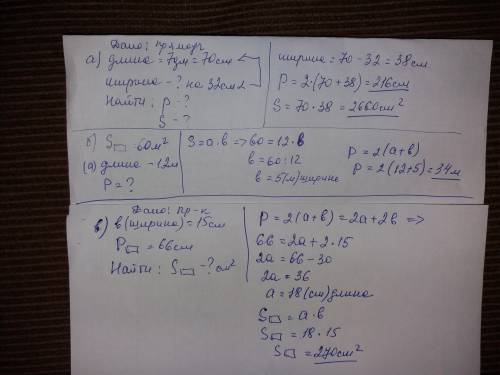 Дано: прямоуг.
а) длина = 7дм = 70см
ширина - ? на 32см <
Найти: P - ?
S - ?
ширина = 70 - 32 = 38см
P = 2·(70+38) = 216см
S = 70·38 = 2660см²
б) S▭ 60м²
(а) длина - 12м
P = ?
S = a·в => 60 = 12·в
в = 60:12
в = 5(м) ширина
P = 2(a+в)
P = 2(12+5) = 34м
Дано: пр-к
в) в (ширина) = 15см
P▭ = 66см
Найти: S▭ - ? см²
P = 2(a+в) = 2a+2в =>
66 = 2a+2·15
2a = 66 - 30
2a = 36
a = 18 (см) длина
S▭ = a·в
S▭ = 18·15
S▭ = 270см²